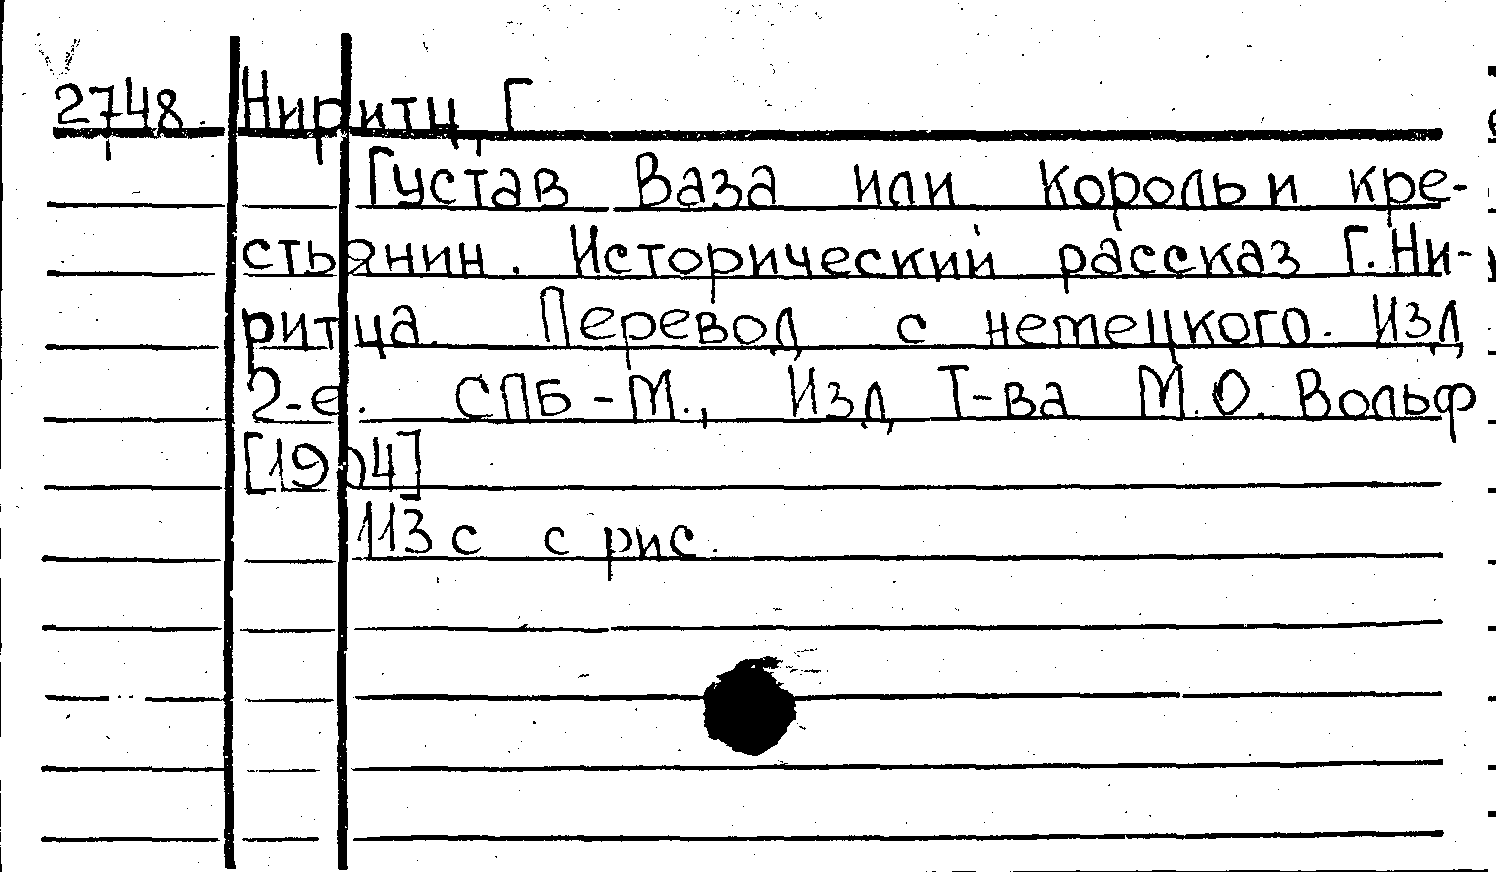 2748. Ниритц, Г
Густав Ваза или Король и кре-
стьянин. Исторический рассказ Г. Ни-
ритца. Перевод с немецкого. Изд
2-е. СПБ-М., Изд Т-ва М.О. Вольф
[1904]
113 с с рис.